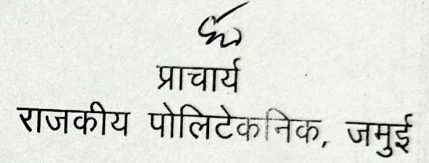 प्राचार्य
राजकीय पोलिटेकनिक, जमुई